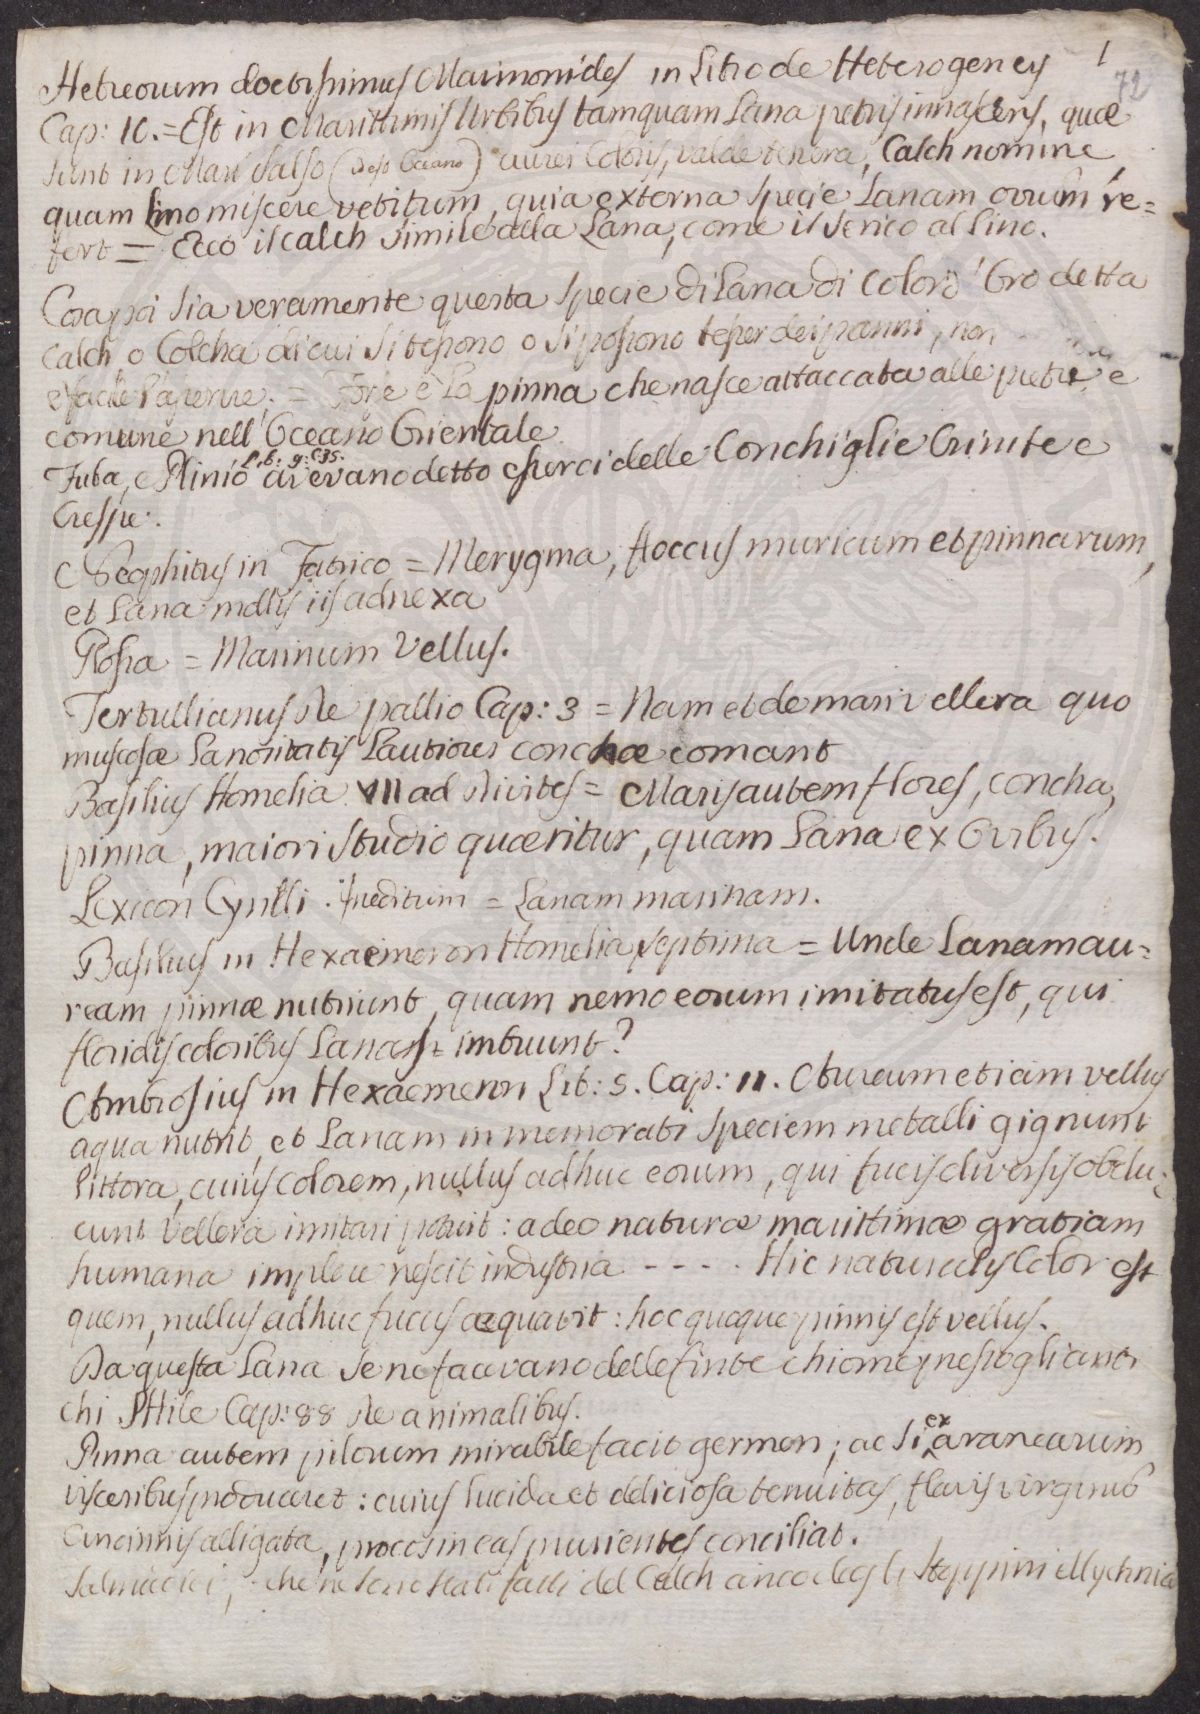 1
72
Hebreorum doctissimus Maimonides in Libro de Heterogeneis
Cap: 10. = Est in Marittimis Urbibus tamquam Lana petris innascens, quæ
sunt in Mari Salso (Oceano) aurei Coloris, valde tenera, Calch nomine
quam lino miscere vetitum, quia externa Specie Lanam ovium re=
fert = Ecco il calch simile alla Lana, come il Serico al Lino.
Cosa poi sia veramente questa Specie di Lana di Color d'Oro detta
Calch o Colcha di cui si tessono o si possono tesser dei panni, non
è facile l'asserire. = Forse è la pinna che nasce attaccata alle pietre e
comune nell'Oceano Orientale
Lib: 9. C35.
Juba, e Plinio avevano detto esserci delle Conchiglie Crinite e
Crespe.
in Fabrico = Merygma, floccus muricum et pinnarum,
et Lana mollis iis adnexa
Glossa = Marinum Vellus.
Tertullianus De pallio Cap: 3 = Nam et de mari vellera quo
muscosæ Lanositatis Lautiores conchæ comant
Basilius Homelia VII ad Divites = Maris autem flores, concha,
pinna, maiori Studio quæritur, quam Lana ex Ovibus.
Lexicon Cyrilli ineditum = Lanam marinam.
Basilius in Hexaemeron Homelia septima = Unde Lanam au=
ream pinnæ nutriunt, quam nemo eorum imitatus est, qui
floridis coloribus Lanas imbuunt?
Ambrosius in Hexaemeron Lib: 5. Cap: 11. Aureum etiam vellus
aqua nutrit, et Lanam in memorati Speciem metalli gignunt
Littora, cuius colorem, nullus adhuc eorum, qui fucis diversis obdu=
cunt vellera imitari potuit: adeo naturæ marittimæ gratiam
humana implere nescit industria - - - - Hic naturalis Color est
quem, nullus adhuc fucus æquavit: hoc quoque pinnis est vellus.
Da questa Lana se ne facevano delle finte chiome pressogli anti
chi Phile Cap: 88 De animalibus.
Pinna autem pilorum mirabile facit germen; ac si ex aranearum
visceribus produceret: cuius lucida et deliciosa tenuitas, flavis virginum
Cincinnis alligata, procos in eas prurientes conciliat.
che ne sono stati fatti del Calch anco degli Stoppini ellychnia